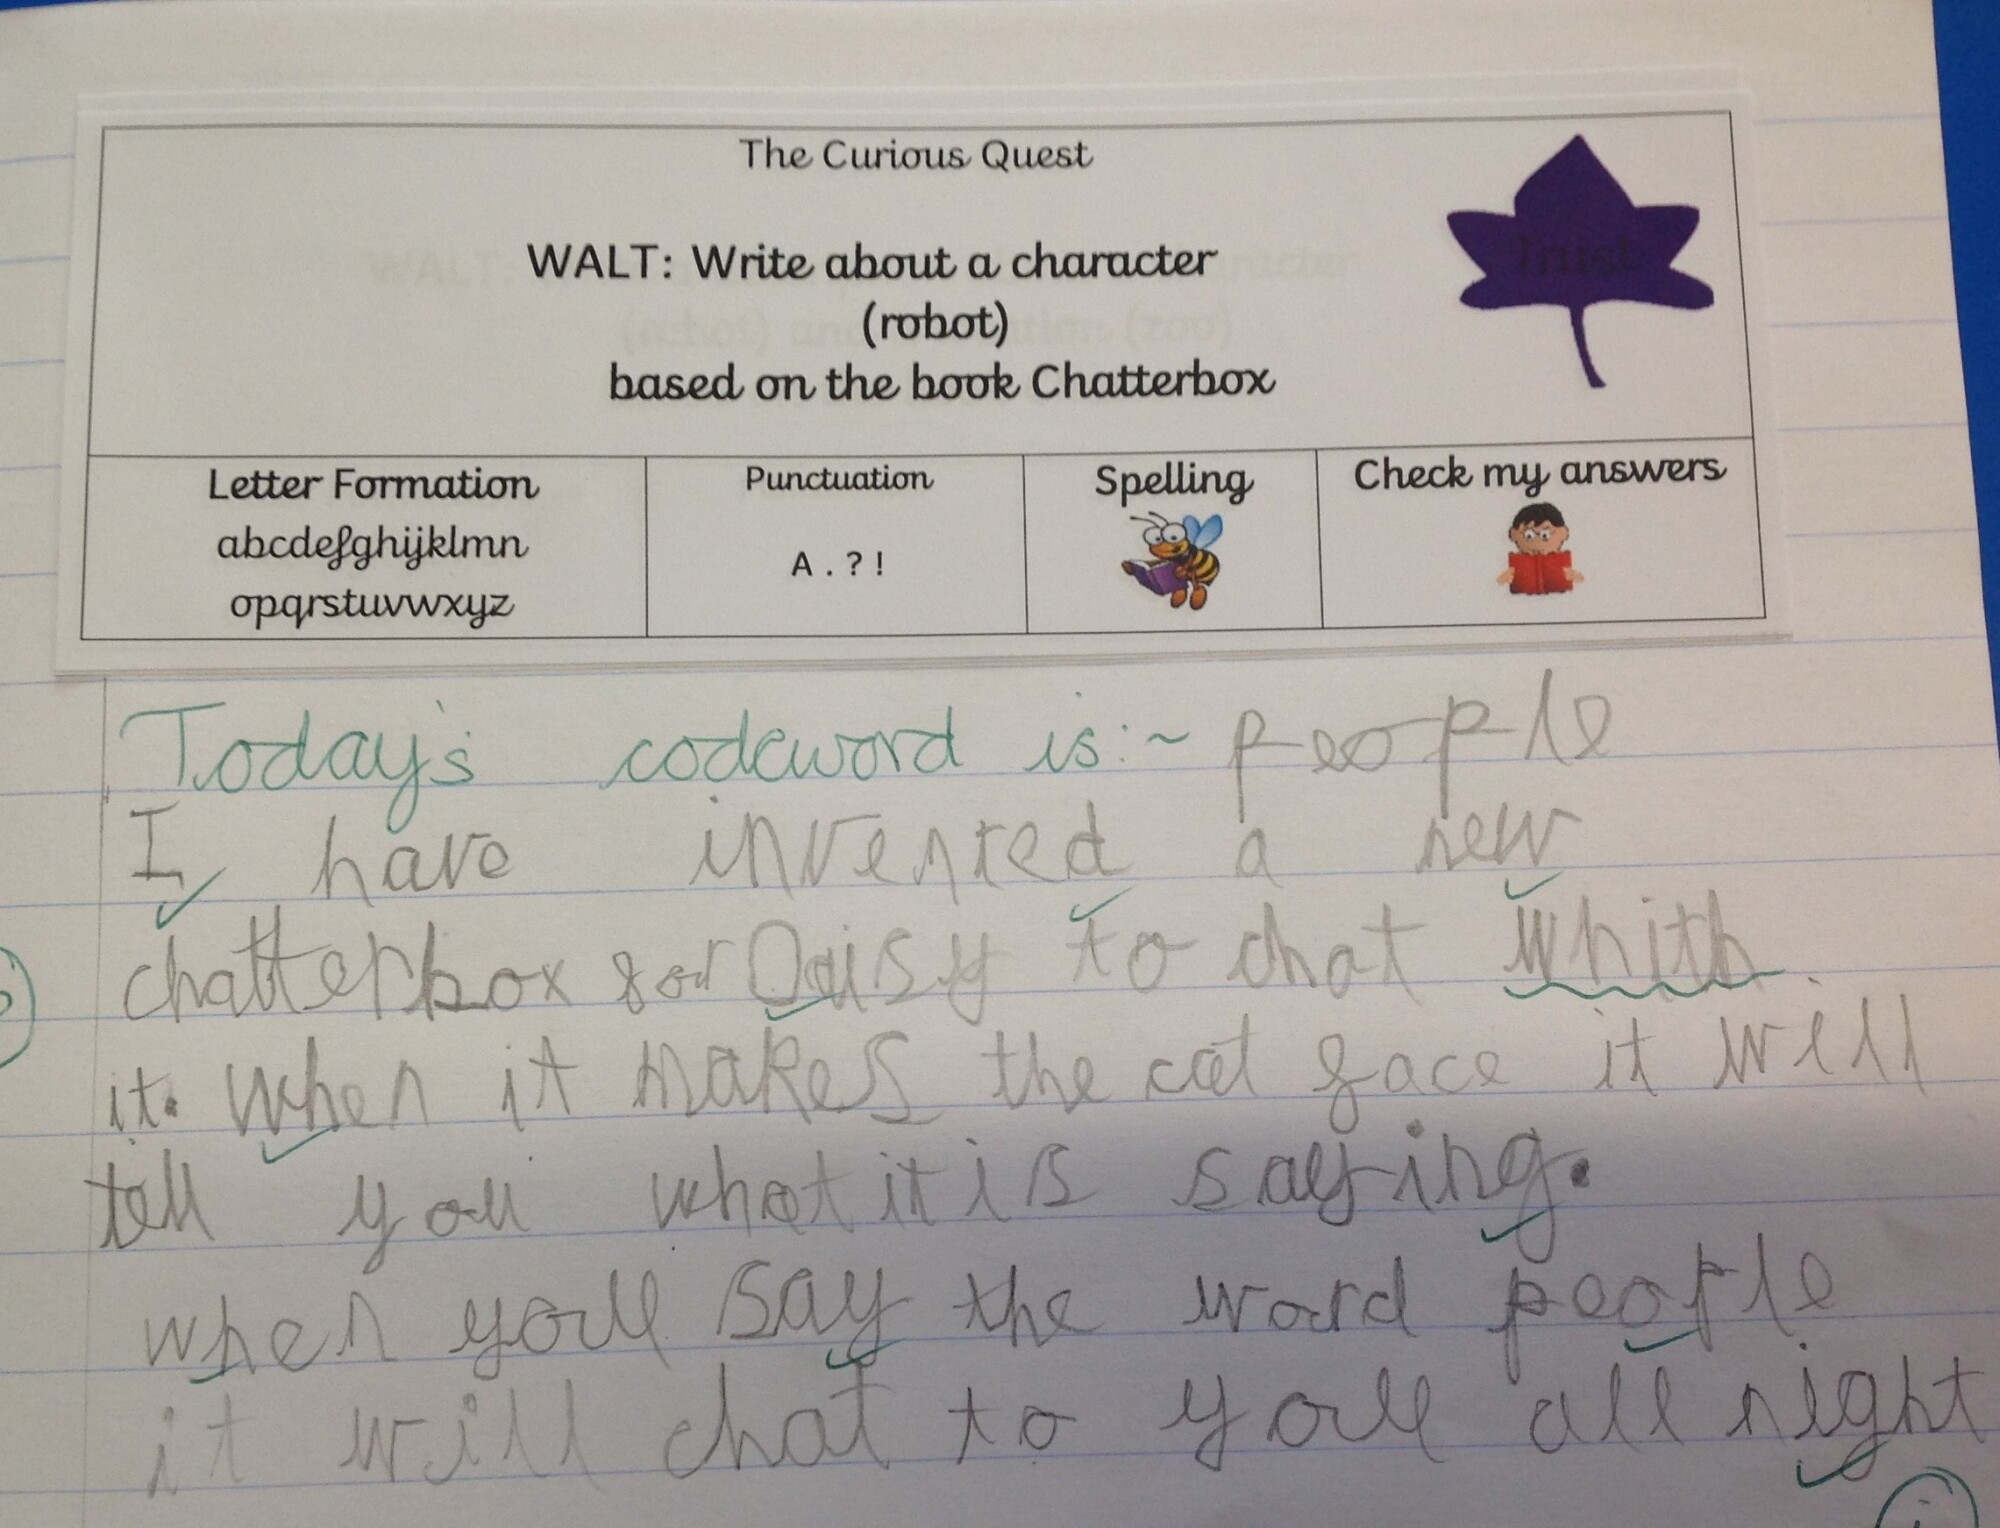 The Curious Quest
WALT: Write about a character
(robot)
based on the book Chatterbox
Trust
Letter Formation
abcdefghijklmn
opqrstuvwxyz
Punctuation
A . ? !
Spelling
Check my answers
Today's codeword is:~ people
I have invented a new
chatterbox for Daisy to chat whith
it. When it makes the cat face it will
tell you what it is saying.
when you say the word people
it will chat to you all night